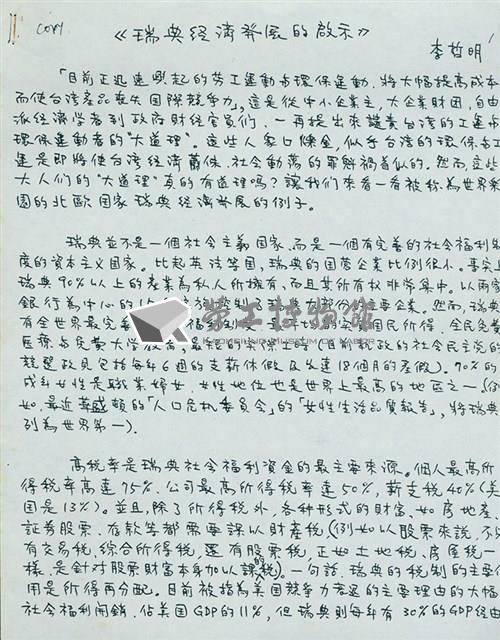 copy
《瑞典經濟發展的啟示》
李哲明
「目前正迅速興起的勞工運動与環保運動,將大幅提高成本
而使台湾產品喪失国際競爭力」,這是從中小企業主,大企業財团,自由
派經濟学者到政府財經官員们,一再提出來譴責台湾的工運与
環保運動者的"大道理"。這些人衆口鑠金,似乎台湾的環保与工
運是即將使台湾經濟蕭條、社会動蕩的罪魁禍首似的。然而,這些
大人们的"大道理"真的有道理嗎?讓我们來看一看被称為世界樂
園的北欧国家瑞典經濟發展的例子。
瑞典並不是一個社会主義国家,而是一個有完善的社会福利制
度的資本主义国家。比起英法等国,瑞典的国营企業比例很小。事实上
瑞典90%以上的產業為私人所擁有,而且其所有权非常集中。以兩家
銀行為中心的 企業。然而,瑞典
有全世界最完 国民所得、全民免費
医療与免費大学教育, 的社会民主党的
競選政見包括每年6週的支薪休假及长達18個月的產假)。90%的
成年女性是職業婦女,女性地位也是世界上最高的地区之一(例
如,最近華盛頓的「人口危机委員会」的「女性生活品質報告」,將瑞典
列為世界第一)。
高税率是瑞典社会福利資金的最主要來源。個人最高所
得税率高達75%,公司最高所得税率達50%,薪支税40%(美
国是13%)。並且,除了所得税外,各种形式的財富,如房地產、
証券股票、存款等都需要課以財產税(例如以股票來説,不只
有交易税,綜合所得税,還有股票税,正如土地税、房屋税一
樣,是針对股票財富本身加以課的税)。一句話,瑞典的税制的主要作
用是所得再分配。目前被指為美国競爭力衰退的主要理由的大幅
社会福利開銷,佔美国GDP的11%,但瑞典則每年有30%的GDP經由